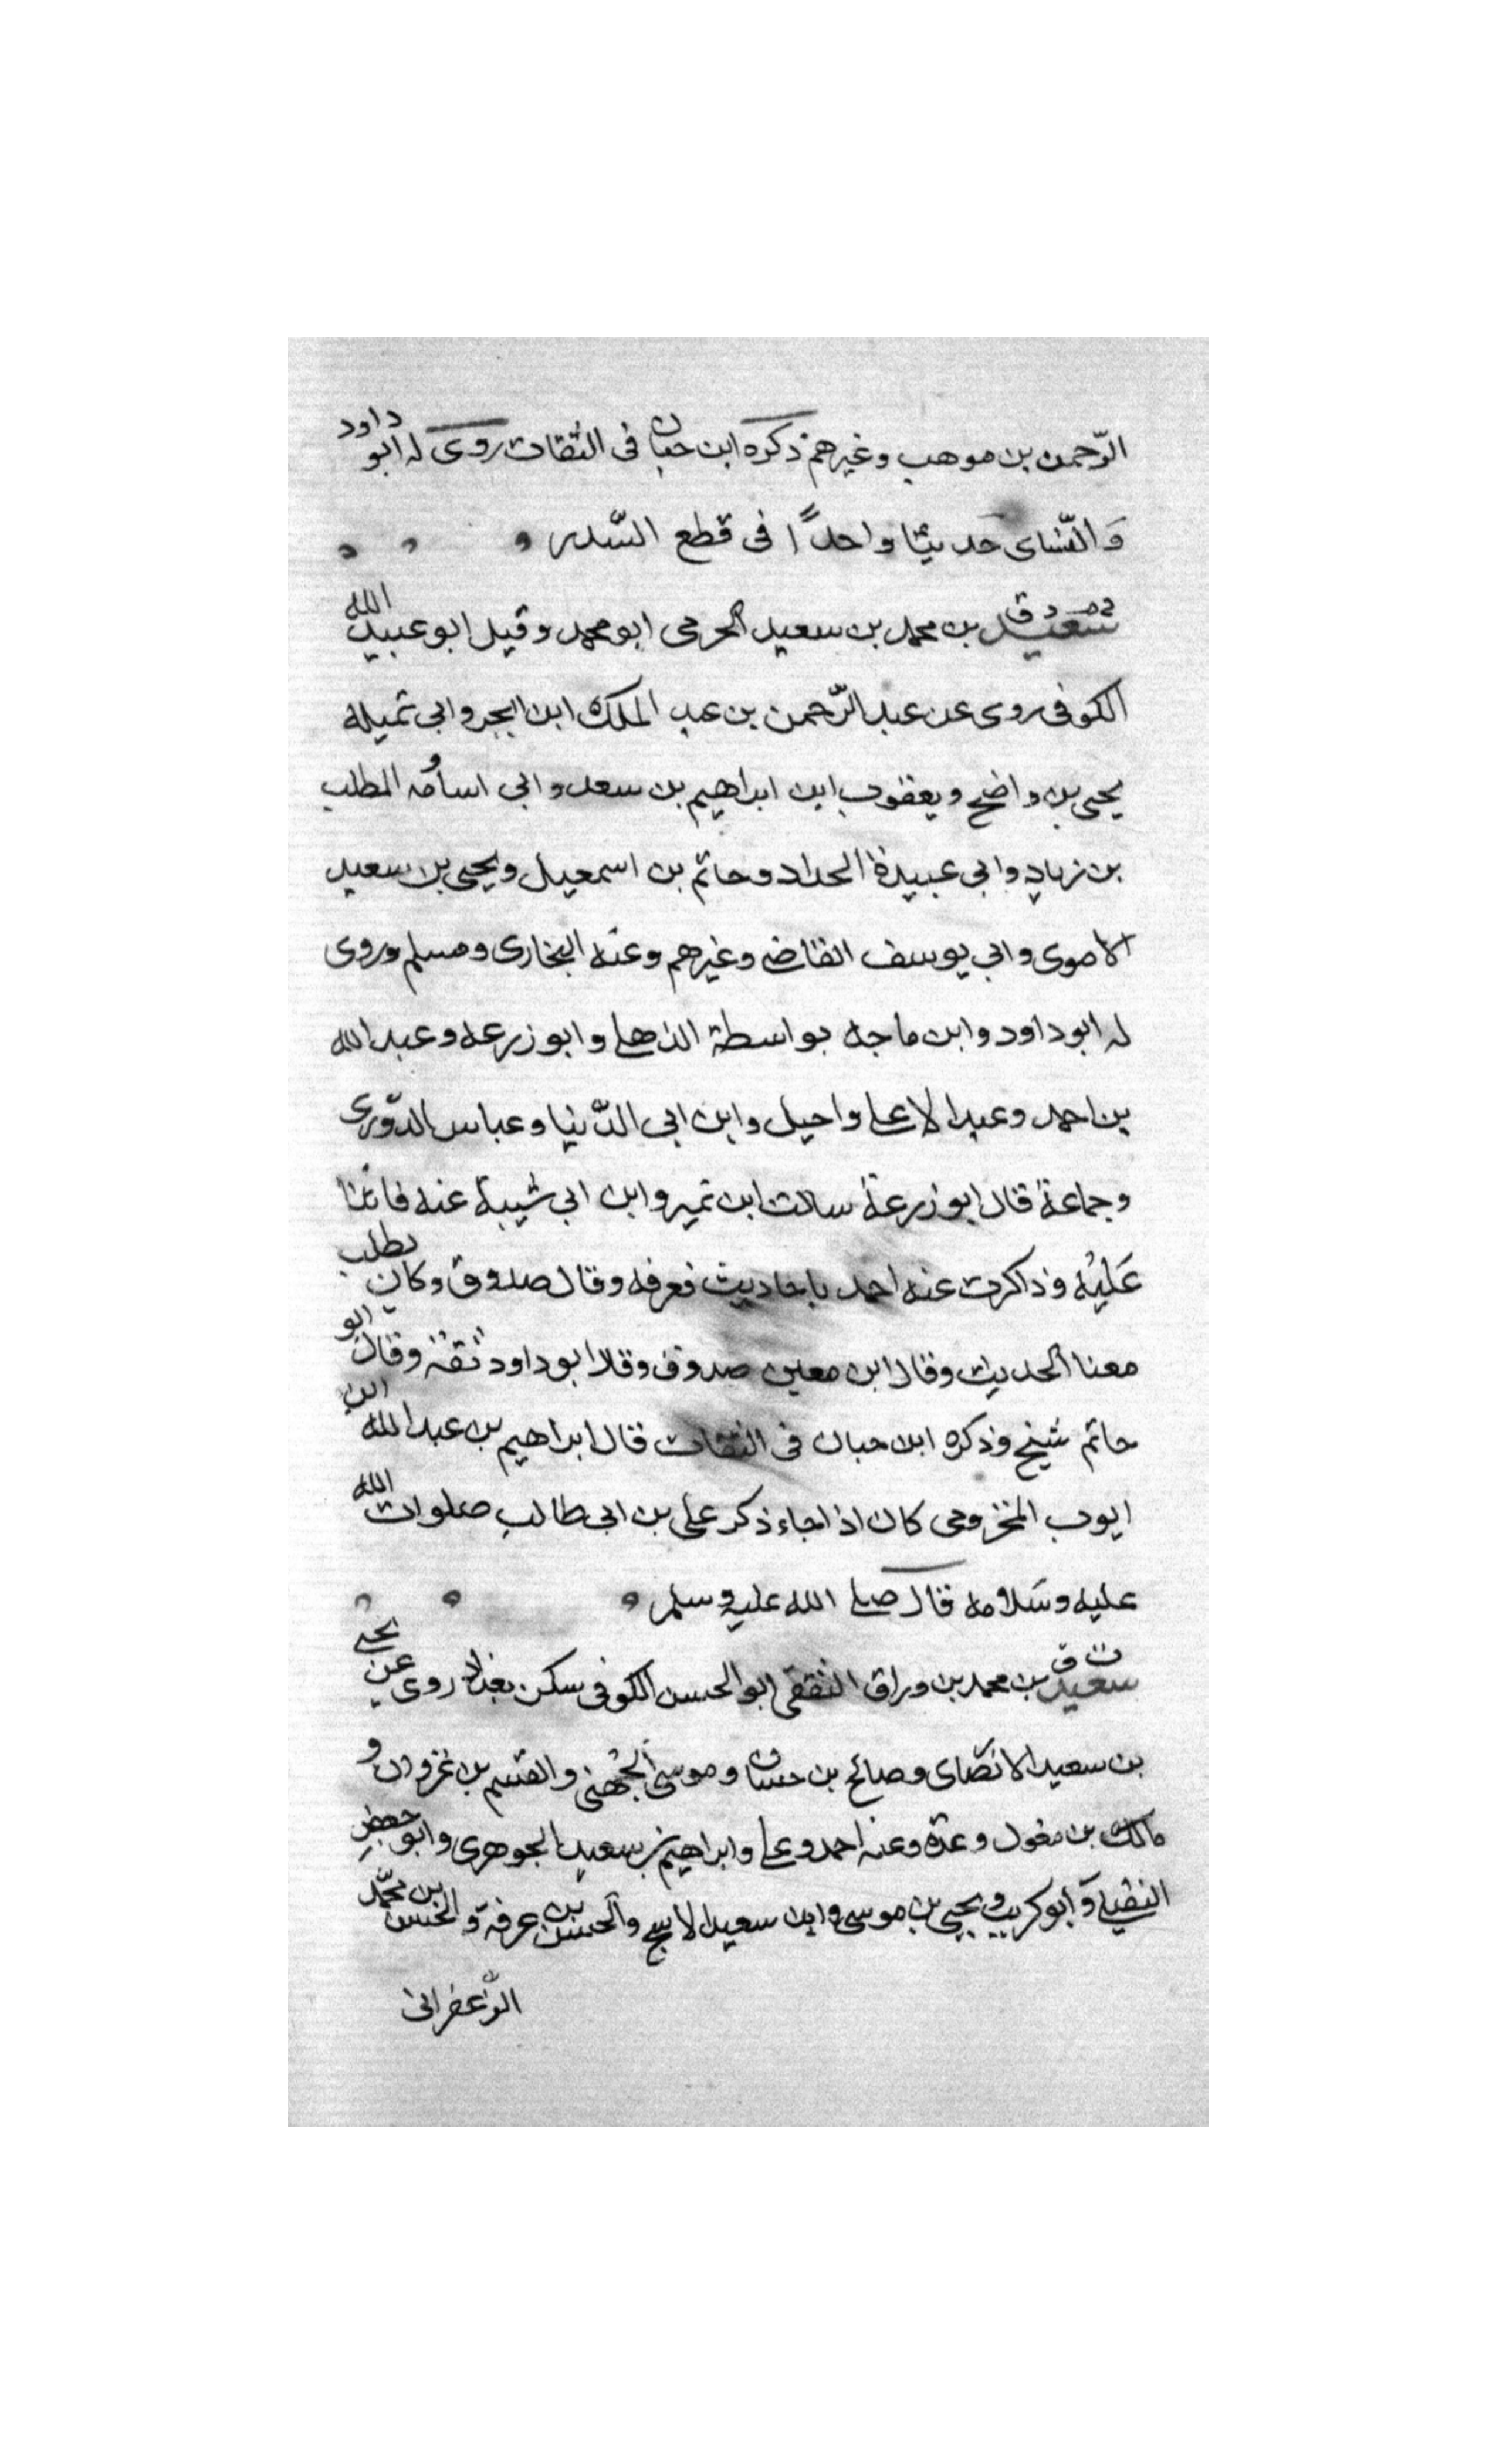 الرّحمن بن موهب وغيرهم ذكره ابن حبان فى الثقات روى له ابو داود
وَالنّساى حَديثا واحدًا فى قطع السّدر
خ م د ق سعيد بن محمد بن سعيد الجرمى ابو محمد وقيل ابو عبيد الله
الكوفى روى عن عبد الرّحمن بن عبد الملك ابن ابجر وابى تميلة
يحيى بن واضح ويعقوب ابن ابراهيم بن سعد وابى اسامه و المطلب
بن زياد وابى عبيدة الحداد وحاتم بن اسمعيل ويحيى بن سعيد
الاموى وابى يوسف القاضى وغيرهم وعنه البخارى ومسلم وروى
له ابو داود وابن ماجه بواسطة الذهلى وابو زرعه وعبد الله
بن احمد وعبد الاعلى واحيل وابن ابى الدّنيا وعباس الدّورى
وجماعة قال ابو زرعة سالت ابن نمير وابن ابى شيبة عنه فاثنا
عَليْه وذاكرت عنه احمد باحاديث فعرفه وقال صدوق وكان يطلب
معنا الحديث وقال ابن معين صدوق وقلا ابو داود ثقة وقال ابو
حاتم شيخ وذكره ابن حبان فى الثقات قال ابراهيم بن عبد الله ابن
ايوب المخزومى كان اذا جاء ذكر على بن ابى طالب صلوات الله
عليه وسَلامه قال صلى الله عليه وسلم
ت ق سعيد بن محمد بن وراق الثقفى ابو الحسن الكوفى سكن بغداد روى عن يحيى
بن سعيد الانصاى وصالح بن حسان وموسى الجُهنى والقسم بن غزوان و
مالك بن مغول وعدة وعنه احمد وعلى وابراهيم بن سعيد الجوهرى وابو جعفر
النفيلى وَابو كريب ويحيى بن موسى وابن سعيد الاشج والحسن بن عرفة وَالحسن بن محمّد
الزّعفرانى